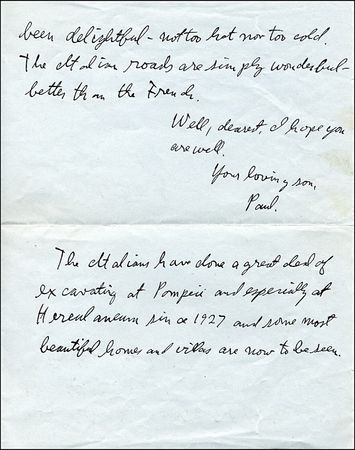 been delightful - not too hot nor too cold.
The Italian roads are simply wonderful -
better than the French.
Well, dearest, I hope you
are well.
Your loving son,
Paul.
The Italians have done a great deal of
excavating at Pompeii and especially at
Herculaneum since 1927 and some most
beautiful homes and villas are now to be seen.